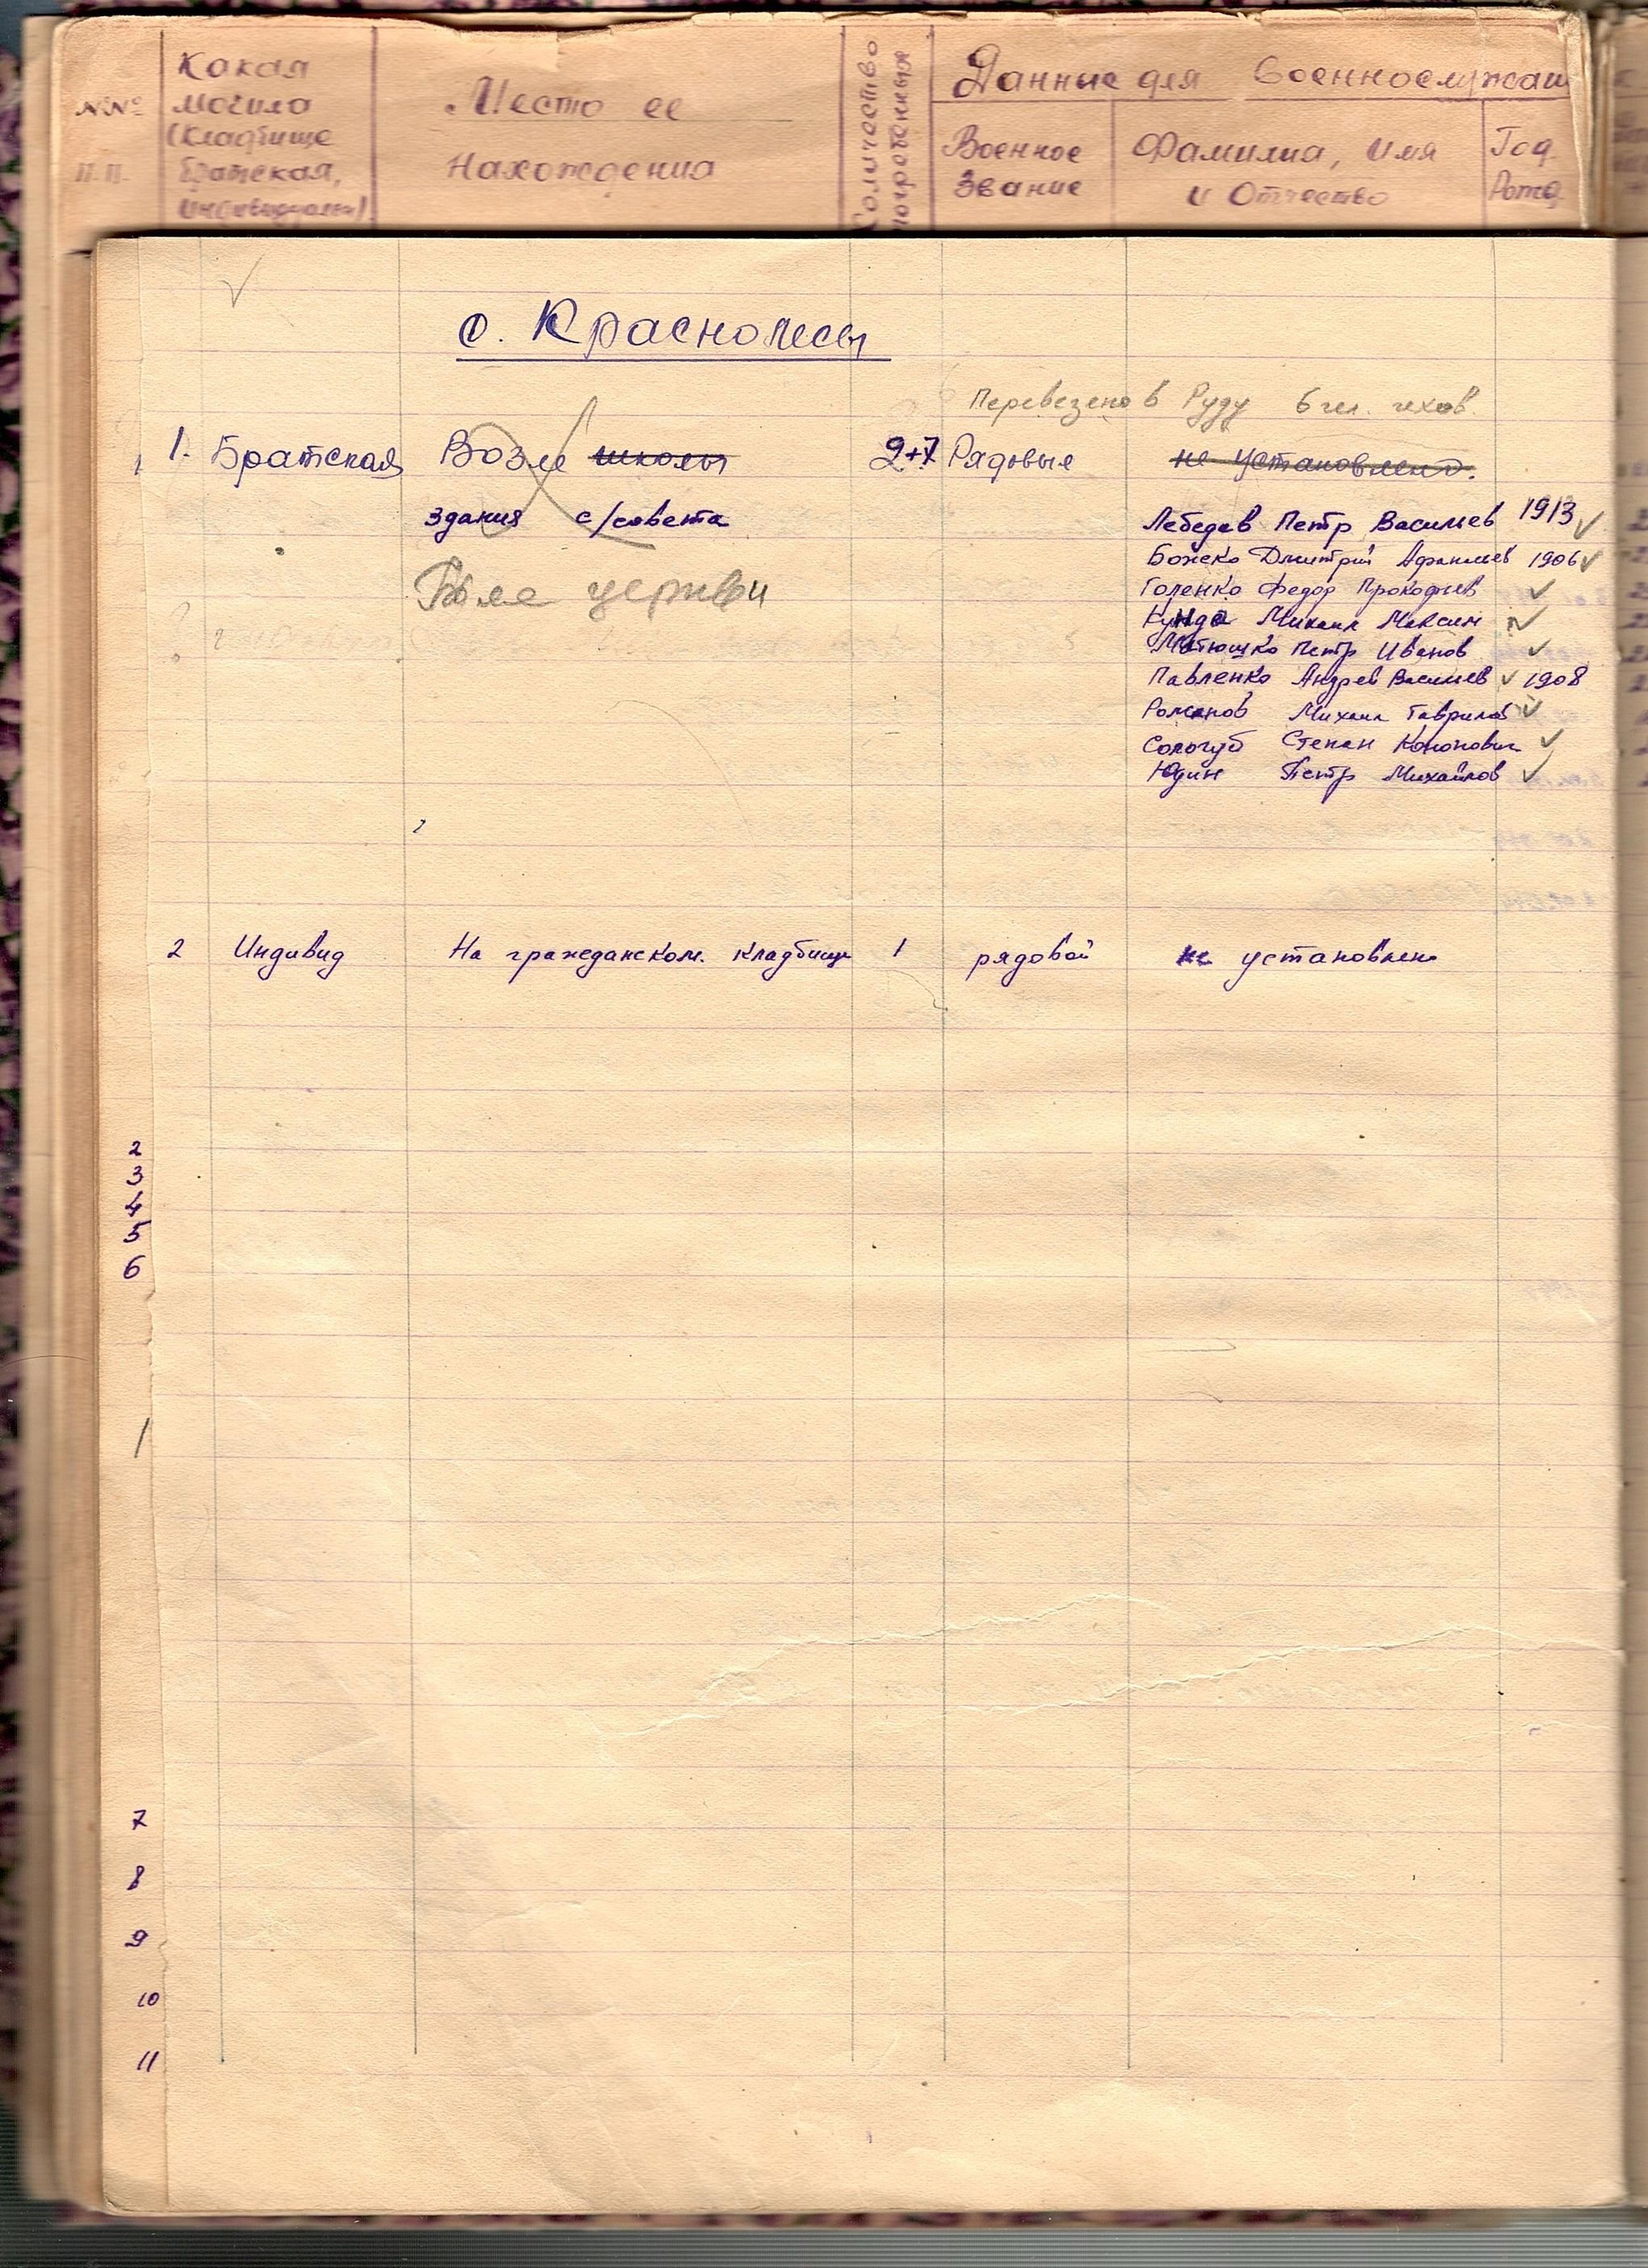 №№ п.п.
Какая могила (кладбище братская, индивидуальн)
Место ее нахождения
Количество погребенных
Данные для военнослужащ
Военное звание
Фамилия, имя и отчество
Год Рожд.
с. Краснолесы
Перевезено в Руду 6 чел. чехов.
1. Братская Возле школы 2+7 Рядовые не установлено.
здания с/совета Лебедев Петр Васильев 1913
Божеко Дмитрий Афанасьев 1906
Возле церкви Голенко Федор Прокофьев
Кунда Михаил Максим
Матюшко Петр Иванов
Павленко Андрей Васильев 1908
Романов Михаил Гаврилов
Сологуб Степан Кононович
Юдин Петр Михайлов
2 Индивид На гражданском. кладбище 1 рядовой не установлен
2
3
4
5
6
7
8
9
10
11